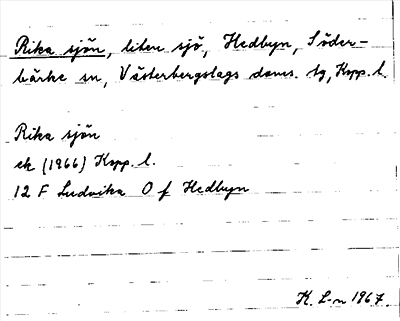 Rika sjön, liten sjö, Hedbyn, Söder-
bärke sn, Västerbergslags doms. tg, Kopp. l.
Rika sjön
ek (1966) Kopp. l.
12 F Ludvika O f Hedbyn
K. L-n 1967.